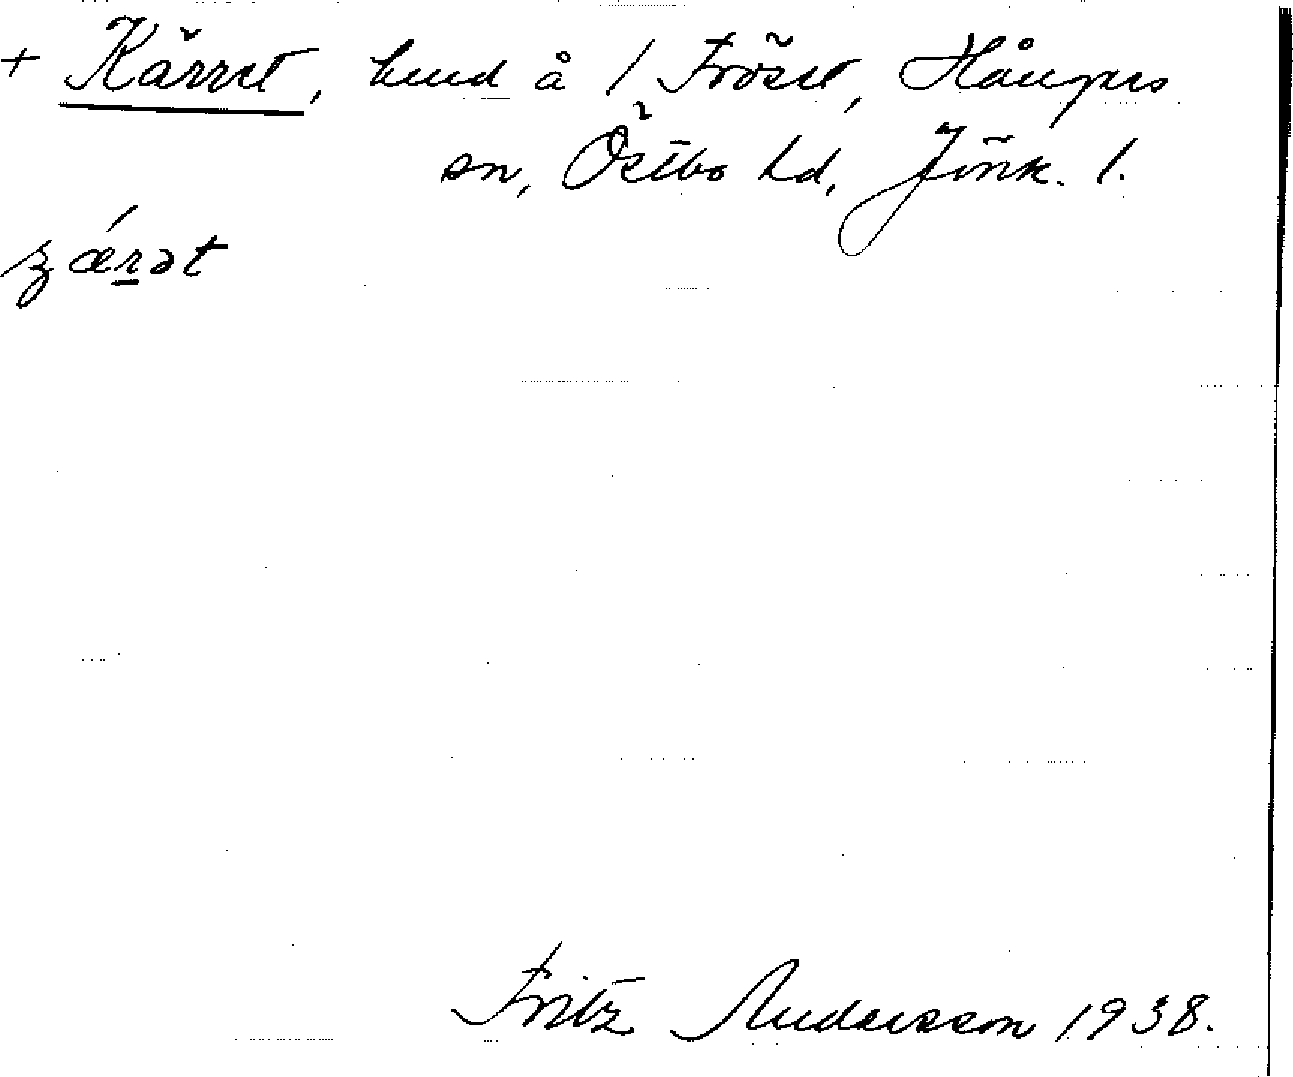 + Kärret, lund å / Fröset, Hångers
sn, Östbo hd, Jönk. l.
ʒǽrət
Fritz Andersson 1938.